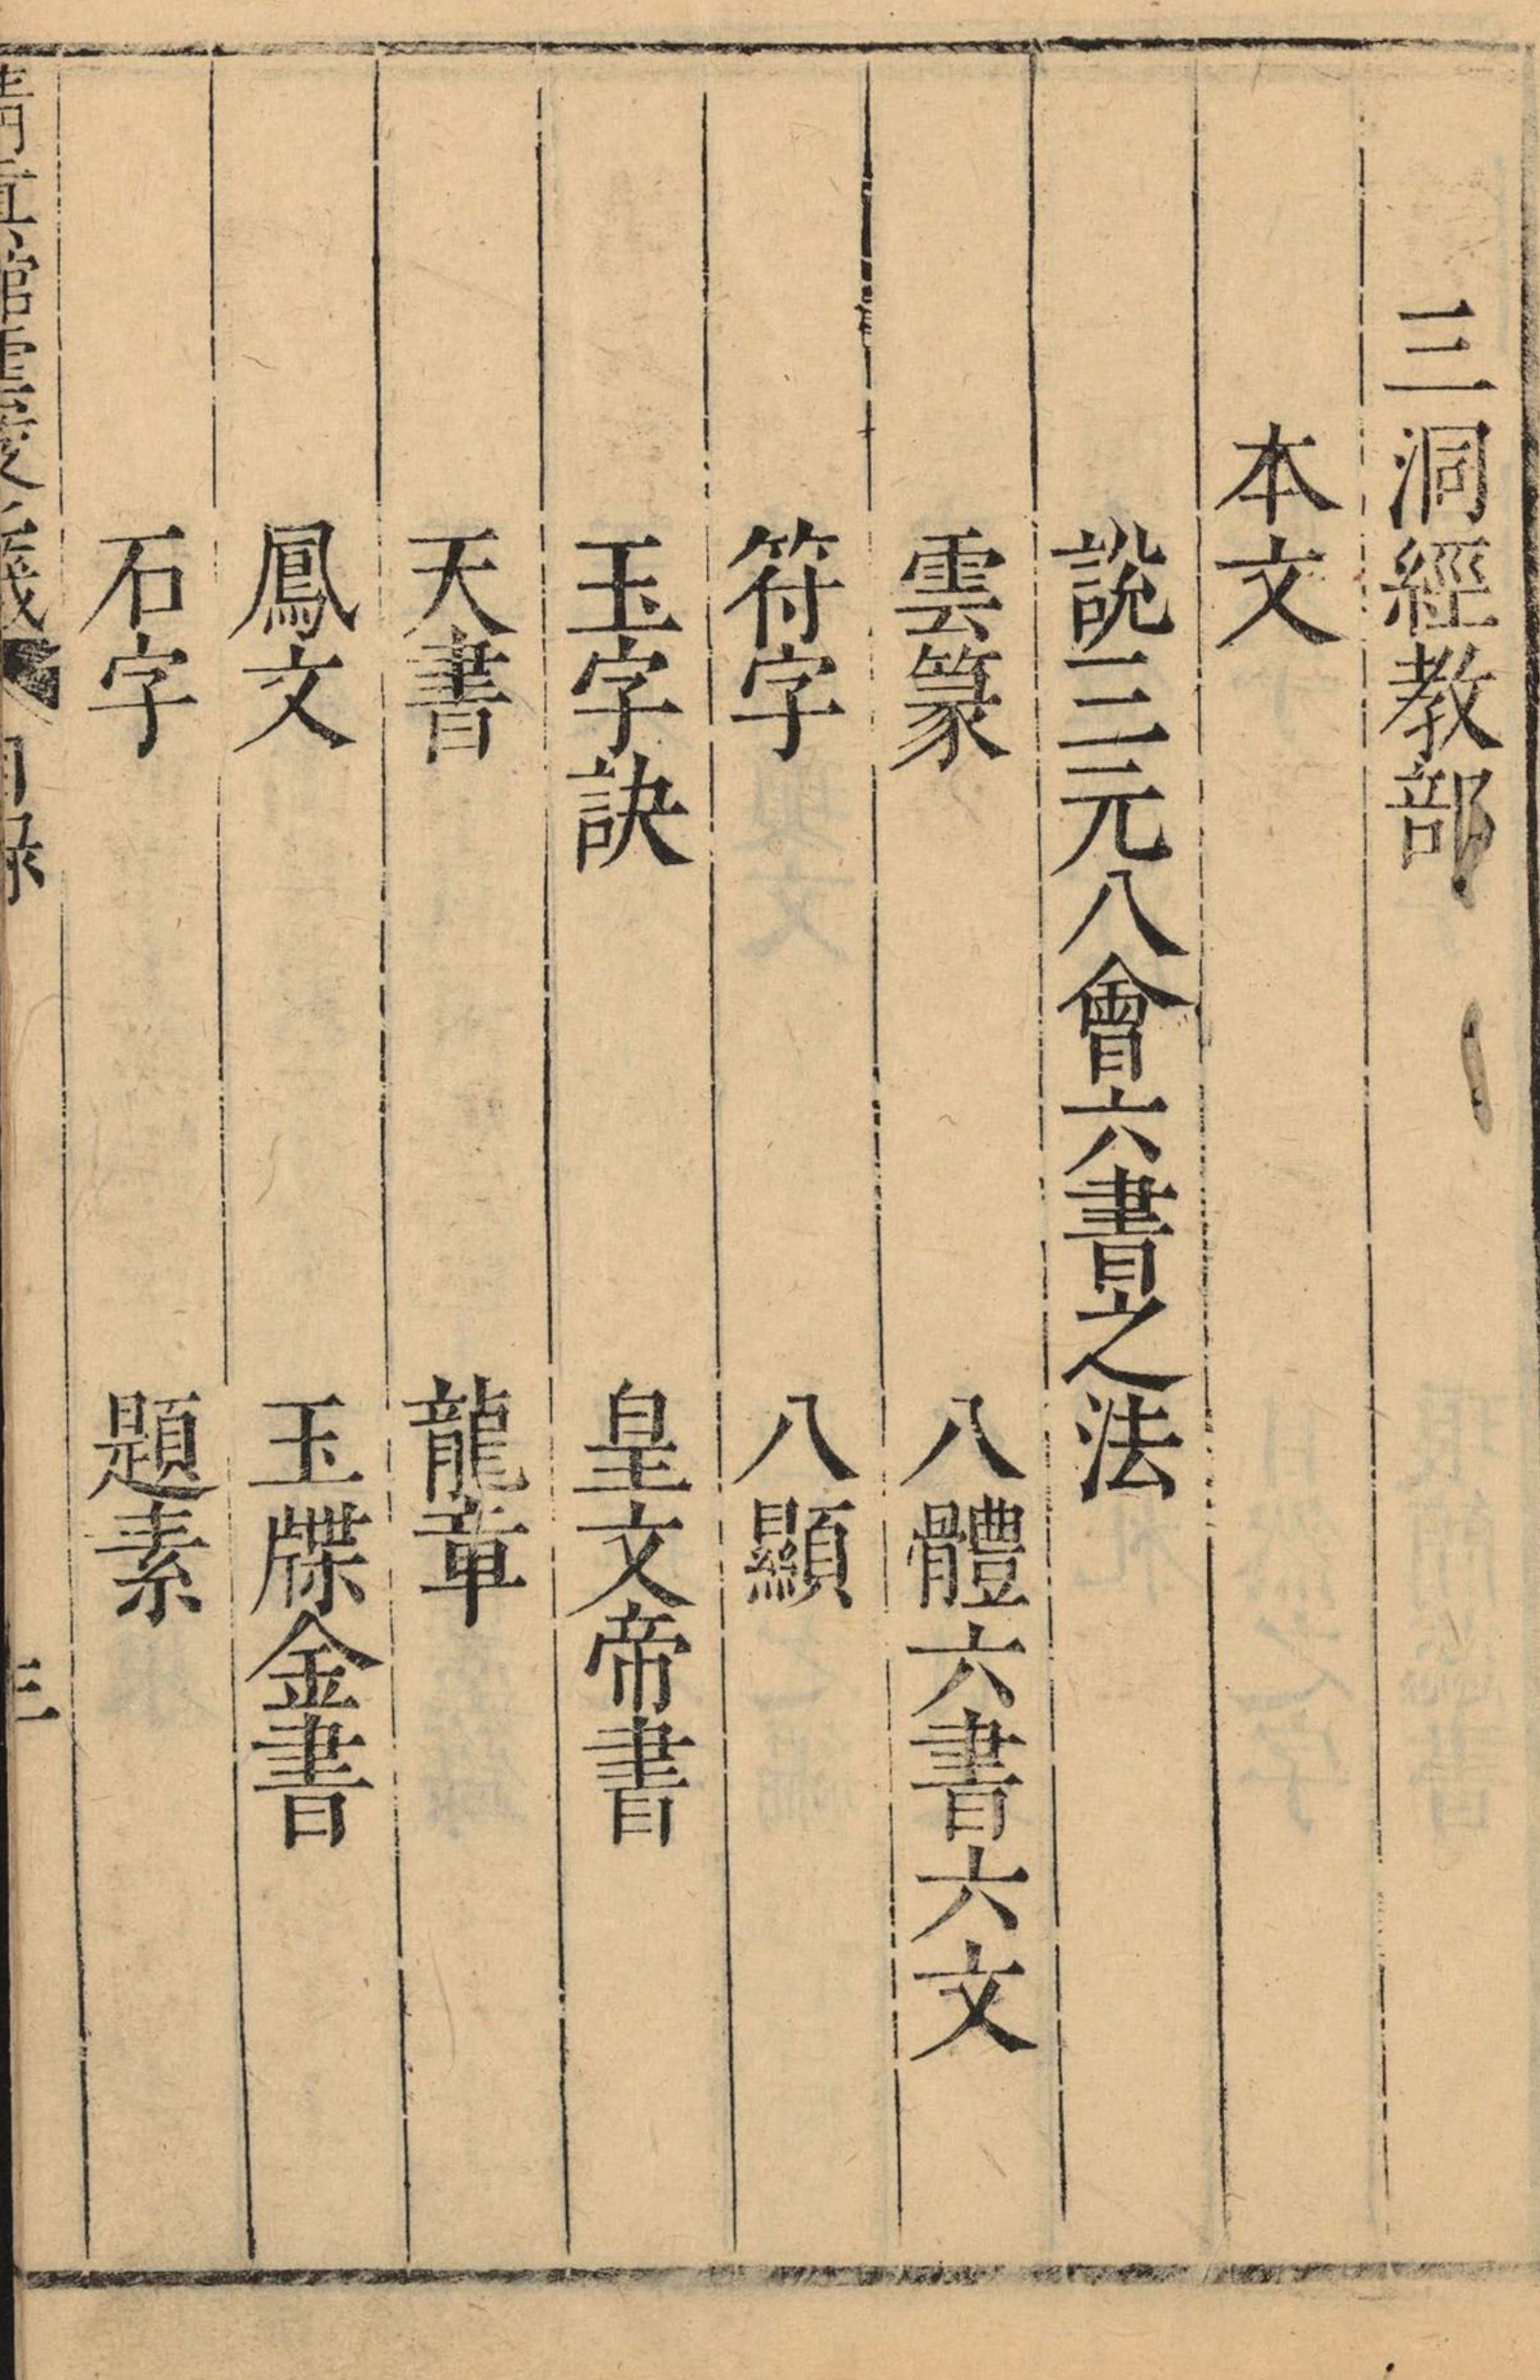 三洞經教部
本文
說三元八會六書之法
雲篆　八體六書六文
符字　八顯
玉字訣　皇文帝書
天書　龍章
鳳文　玉牒金書
石字　題素
目録
三